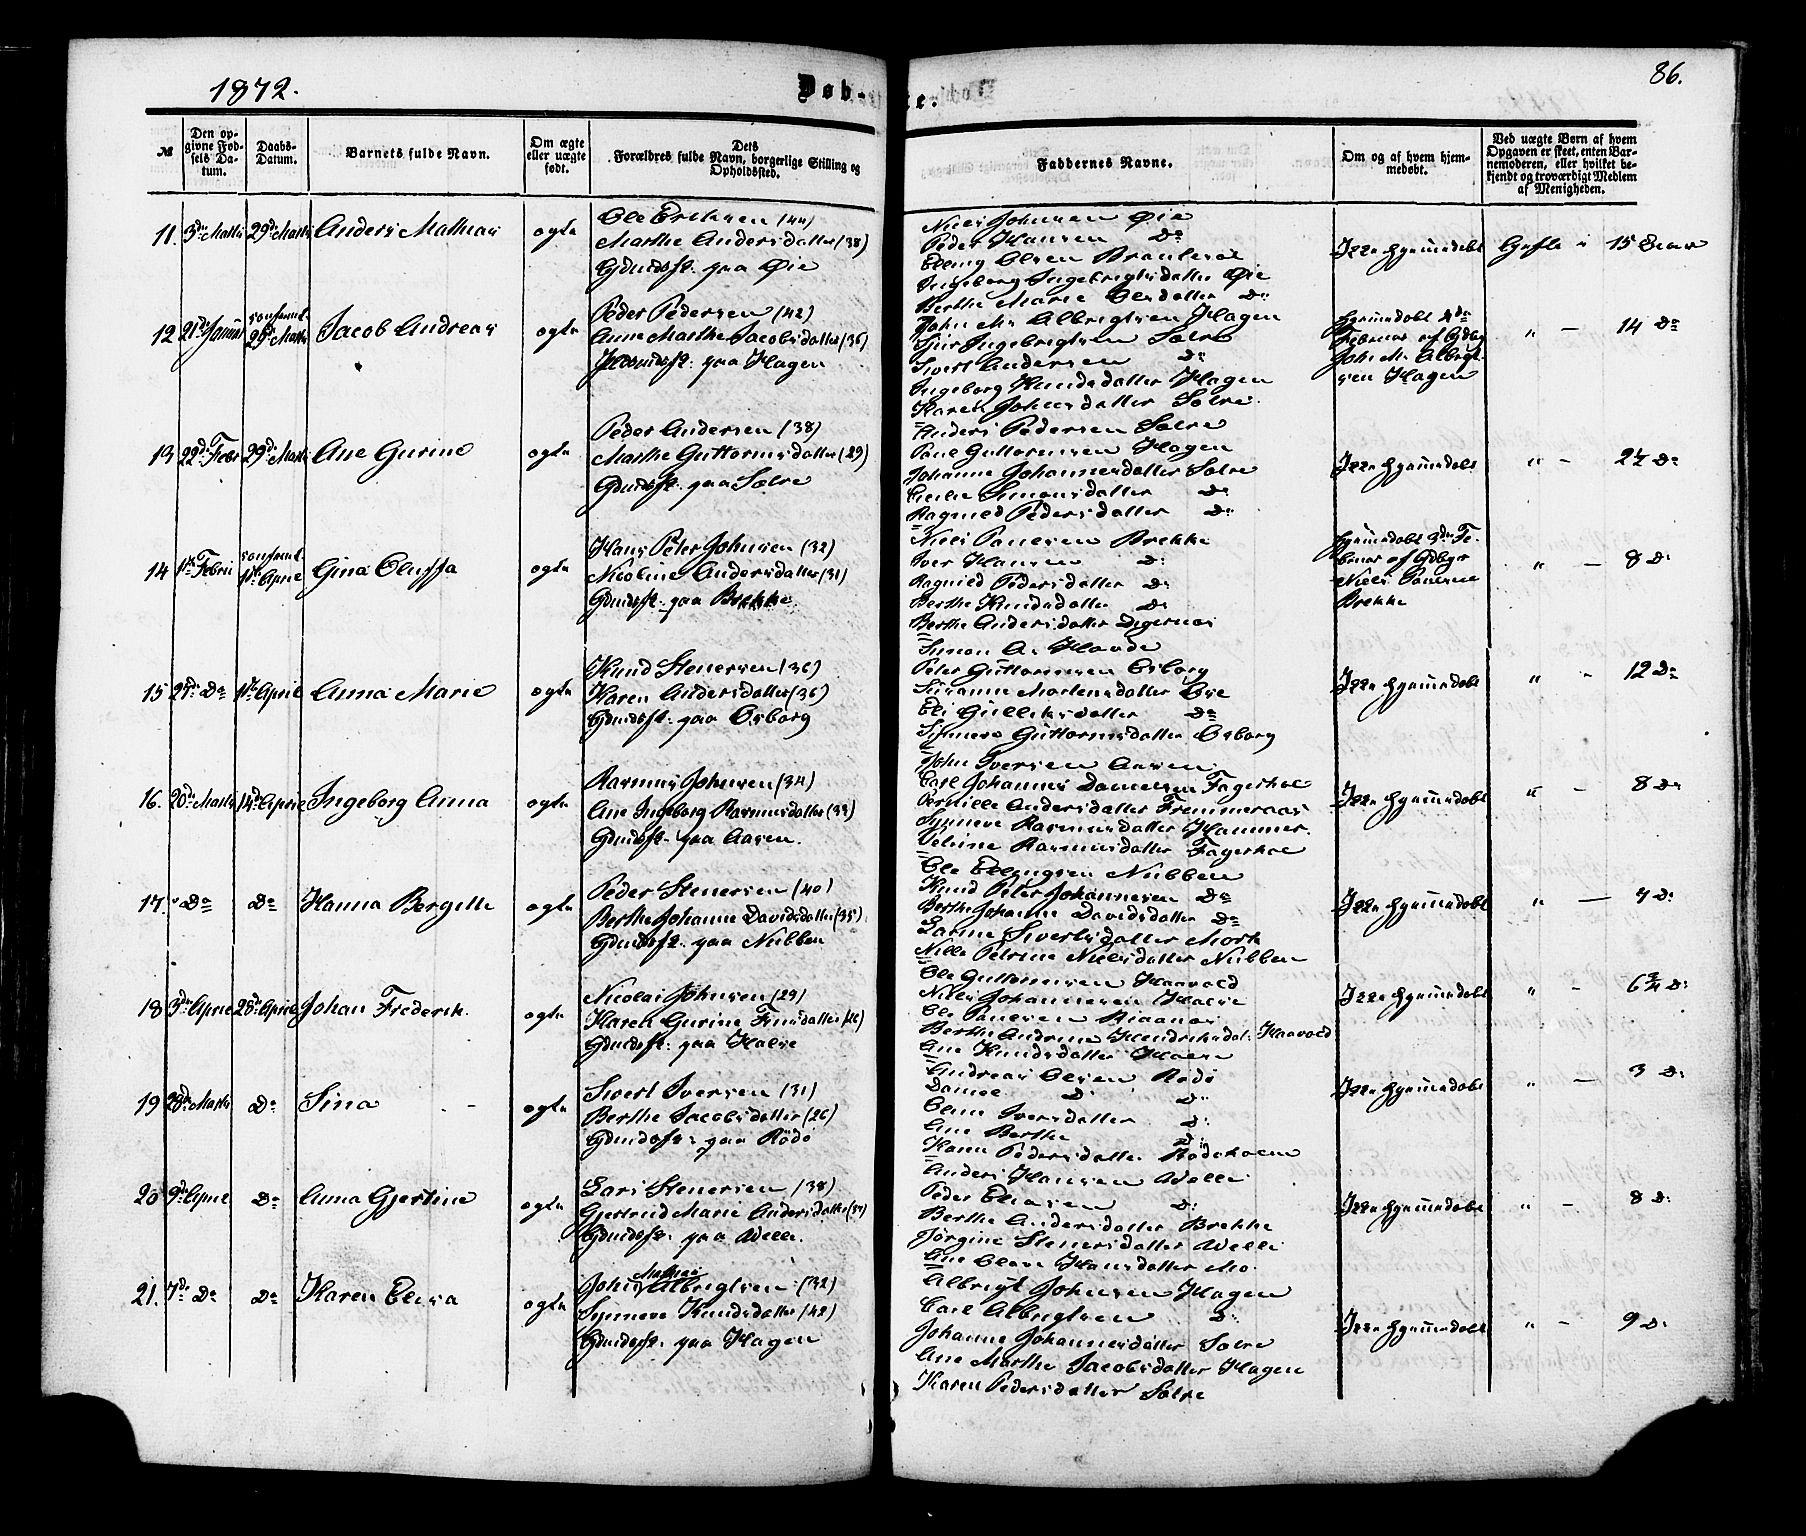 1872.
Døb-
te.
86.
№
Den op-
givne Fød-
sels Da-
tum.
Daabs-
Datum.
Barnets fulde Navn.
Om ægte
eller uægte
født.
Dets
Forældres fulde Navn, borgerlige Stilling og
Opholdssted.
Faddernes Navne.
Om og af hvem hjem-
medøbt.
Ved uægte Børn af hvem
Opgaven er skeet, enten Bar-
nemoderen, eller hvilket be-
kjendt og troværdigt Medlem
af Menigheden.
11. 3die Marts 29de Marts Anders Mathias ægte
Ole Eriksen (44)
Marthe Andersdatter (38)
Gdmdsf. paa Øie
Niels Johnsen Øie
Peder Hansen Do
Elling Olsen
Ingeborg Ingebrigtsdatter Øie
Berthe Marie Olsdatter Do
Ikke hjemmedøbt
15 Do
12 21de Januar 29de Marts Jacob Andreas ægte
Peder Pedersen (42)
Anne Marthe Jacobsdatter (36)
paa Hagen
John Ms. Albrigtsen Hagen
Siur Ingebrigtsen Solre
Sivert Andersen Do
Ingeborg Knudsdatter Hagen
Karen Johnsdatter Solre
hjemmedøbt 4de
Februar af Gdbr
John M. Albrigt-
sen Hagen
" - 14 Do
13 22de Febr 29de Marts Ane Gurine ægte
Peder Andersen (38)
Marthe Guttormsdatter (29)
Gdmdsf. paa Solre
Anders Pedersen Solre
Poul Guttormsen Hagen
Johanne Johannesdatter Solre
Cecilie Simonsdatter Do
Ragnild Pedersdatter Do
Ikke hjemmedøbt
" -
14 1ste Febru 1ste April Gina Oluffa ægte
Hans Peter Johnsen (32)
Nicoline Andersdatter (31)
Gdmdsf. paa Brekke
Niels Poulsen Brekke
Iver Hansen Do
Ragnild Pedersdatter Do
Berthe Knudsdatter Do
Berthe Andersdatter Digernæs
hjemmedøbt 3die Fe-
bruar af Gdbr
Niels Poulsen
Brekke
" - 8 Do
15 27de Do 1ste April Anna Marie ægte
Knud Stenersen (36)
Karen Andersdatter (36)
Gdmdsf. paa Osborg
Simon A. Hovde
Peter Guttormsen Osborg
Susanne Mortensdatter
Eli Gulliksdatter Do
Synneve Guttormsdatter Osborg
Ikke hjemmedøbt
" - 12 Do
16. 20de Marts 14de April Ingeborg Anna ægte
Rasmus Johnsen (34)
Ane Ingeborg Rasmusdatter (33)
Gdmdsf. paa Aasen.
John Iversen Aasen
Carl Johannes Danielsen Fagerhol
Pernille Andersdatter Fremmeraas
Synneve Rasmusdatter Hammer.
Veline Rasmusdatter Fagerhol
Ikke hjemmedøbt
" - 8 Do
17. Do Do Hanna Bergitte ægte
Peder Stenersen (40)
Berthe Johanne Davidsdatter (35)
Gdmdsf. paa Nubben
Ole Ellingsen Nubben
Knud Peter Johannesen Do
Berthe Johanne Davidsdatter Do
Larine Sivertsdatter Mork
Nille Petrine Nielsdatter Nubben
Ikke hjemmedøbt
" - 4 Do
18 3die April 28de April Johan Frederik. ægte
Nicolai Johnsen (29)
Karen Gurine Finsdatter
Gdmdsf. paa Halse
Ole Guttormsen Haavold
Niels Johannesen Halse
Ole Poulsen Riaanæs
Berthe Andrine Hendriksdat. Haavold
Ane Knudsdatter Halse
Ikke hjemmedøbt
" -
19 28de Marts Do Sina ægte
Sivert Iversen (31)
Berthe Jacobsdatter (26)
Gdmdsf. paa Rødø
Andreas Olsen Rødø
Daniel Do Do
Oline Iversdatter Do
Ane Berthe Do
Hanna Pedersdatter Rødeholm
Ikke hjemmedøbt
" - 3 Do
20 9de April Do Anna Gjertine ægte
Lars Stenersen (38)
Gjertrud Marie Andersdatter
Gdmdsf. paa Welle.
Anders Hansen Welle
Peder Eliasen Do
Berthe Andersdatter Brekke
Jørgine Stenersdatter Welle
Ane Oline Hansdatter Mo.
Ikke hjemmedøbt
" - 8 Do
21. 7de Do Do Karen Elisa ægte
John Mathias Albrigtsen (32)
Synneve Knudsdatter (42)
Gdmdsf. paa Hagen
Albrigt Johnsen Hagen
Carl Albrigtsen Do
Johanne Johannesdatter Solre
Ane Marthe Jacobsdatter Hagen
Karen Pedersdatter Solre
Ikke hjemmedøbt
" - 9 Do